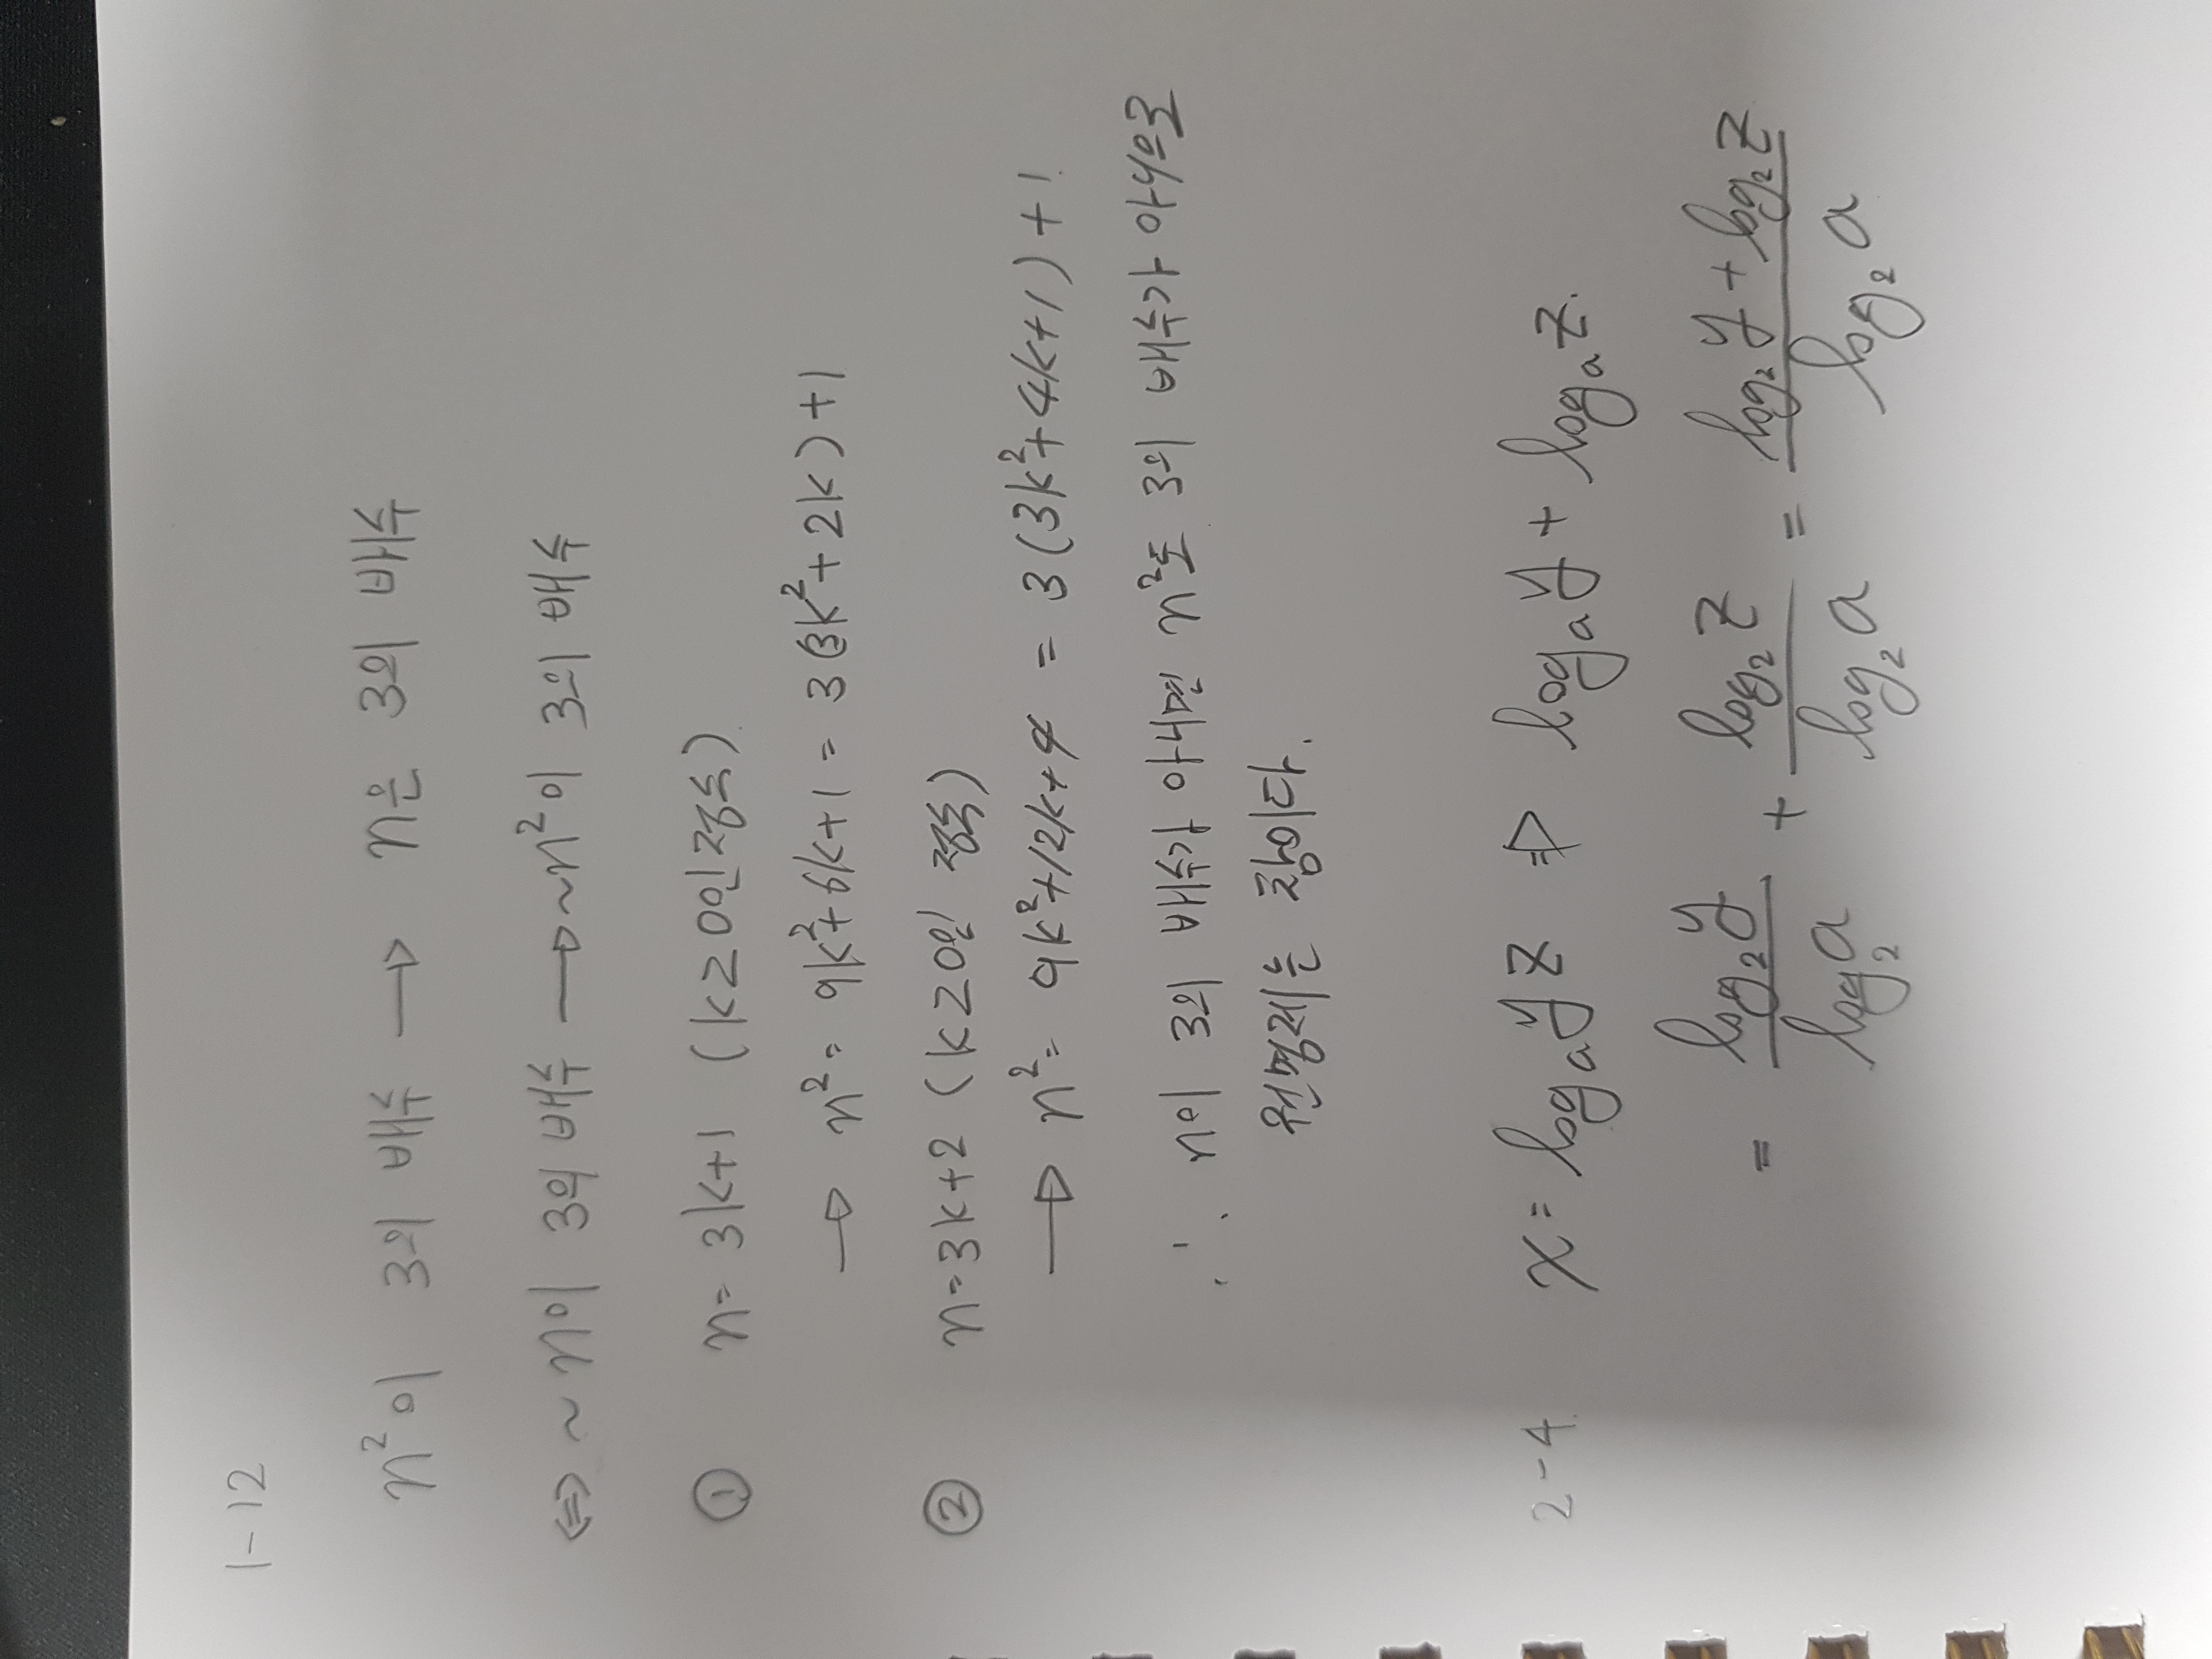 1-12
n²이 3의 배수 → n은 3의 배수
⇔ ~n이 3의 배수 → ~n²이 3의 배수
① n= 3k+1 (k≥0인 정수)
→ n²= 9k²+6k+1 = 3(3k²+2k)+1
② n=3k+2 (k≥0인 정수)
→ n²= 9k²+12k+4 = 3(3k²+4k+1)+1.
∴ n이 3의 배수가 아니면 n²도 3의 배수가 아님으로
원명제는 참이다.
2-4. x= logₐyz ⇒ logₐy + logₐz.
= log₂y/log₂a + log₂z/log₂a = (log₂y + log₂z)/log₂a